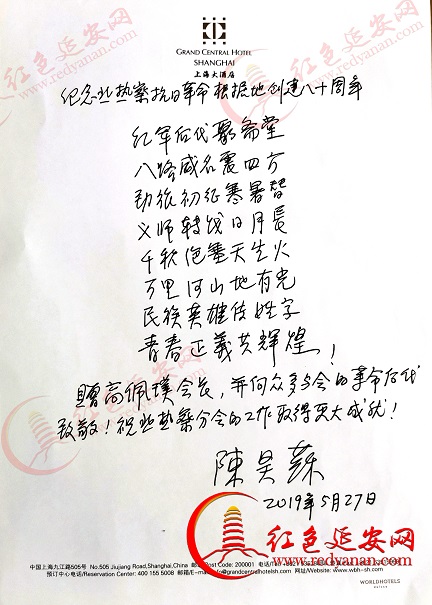 GRAND CENTRAL HOTEL
SHANGHAI
上海大酒店
红色延安网
www.redyanan.com
纪念冀热察抗日革命根据地创建八十周年
红军后代聚斋堂
八路威名震四方
劲旅初征寒暑替
义师转战日月長
千秋炮垒天生火
万里河山地有光
民族英雄传姓字
青春正義共辉煌!
赠高佩璞会长,并向众多与会的革命后代
致敬!祝冀热察分会的工作取得更大成就!
陳昊蘇
2019年5月27日
红色延安网
www.redyanan.com
中国上海九江路505号 No.505 Jiujiang Road,Shanghai,China 邮编/Post Code: 200001 电话/Tel:
预订中心电话/Reservation Center: 400 155 5008 邮箱/E-mail:info@grandcentralhotelsh.com 网址/Website:www.wbh-sh.com
WORLDHOTELS